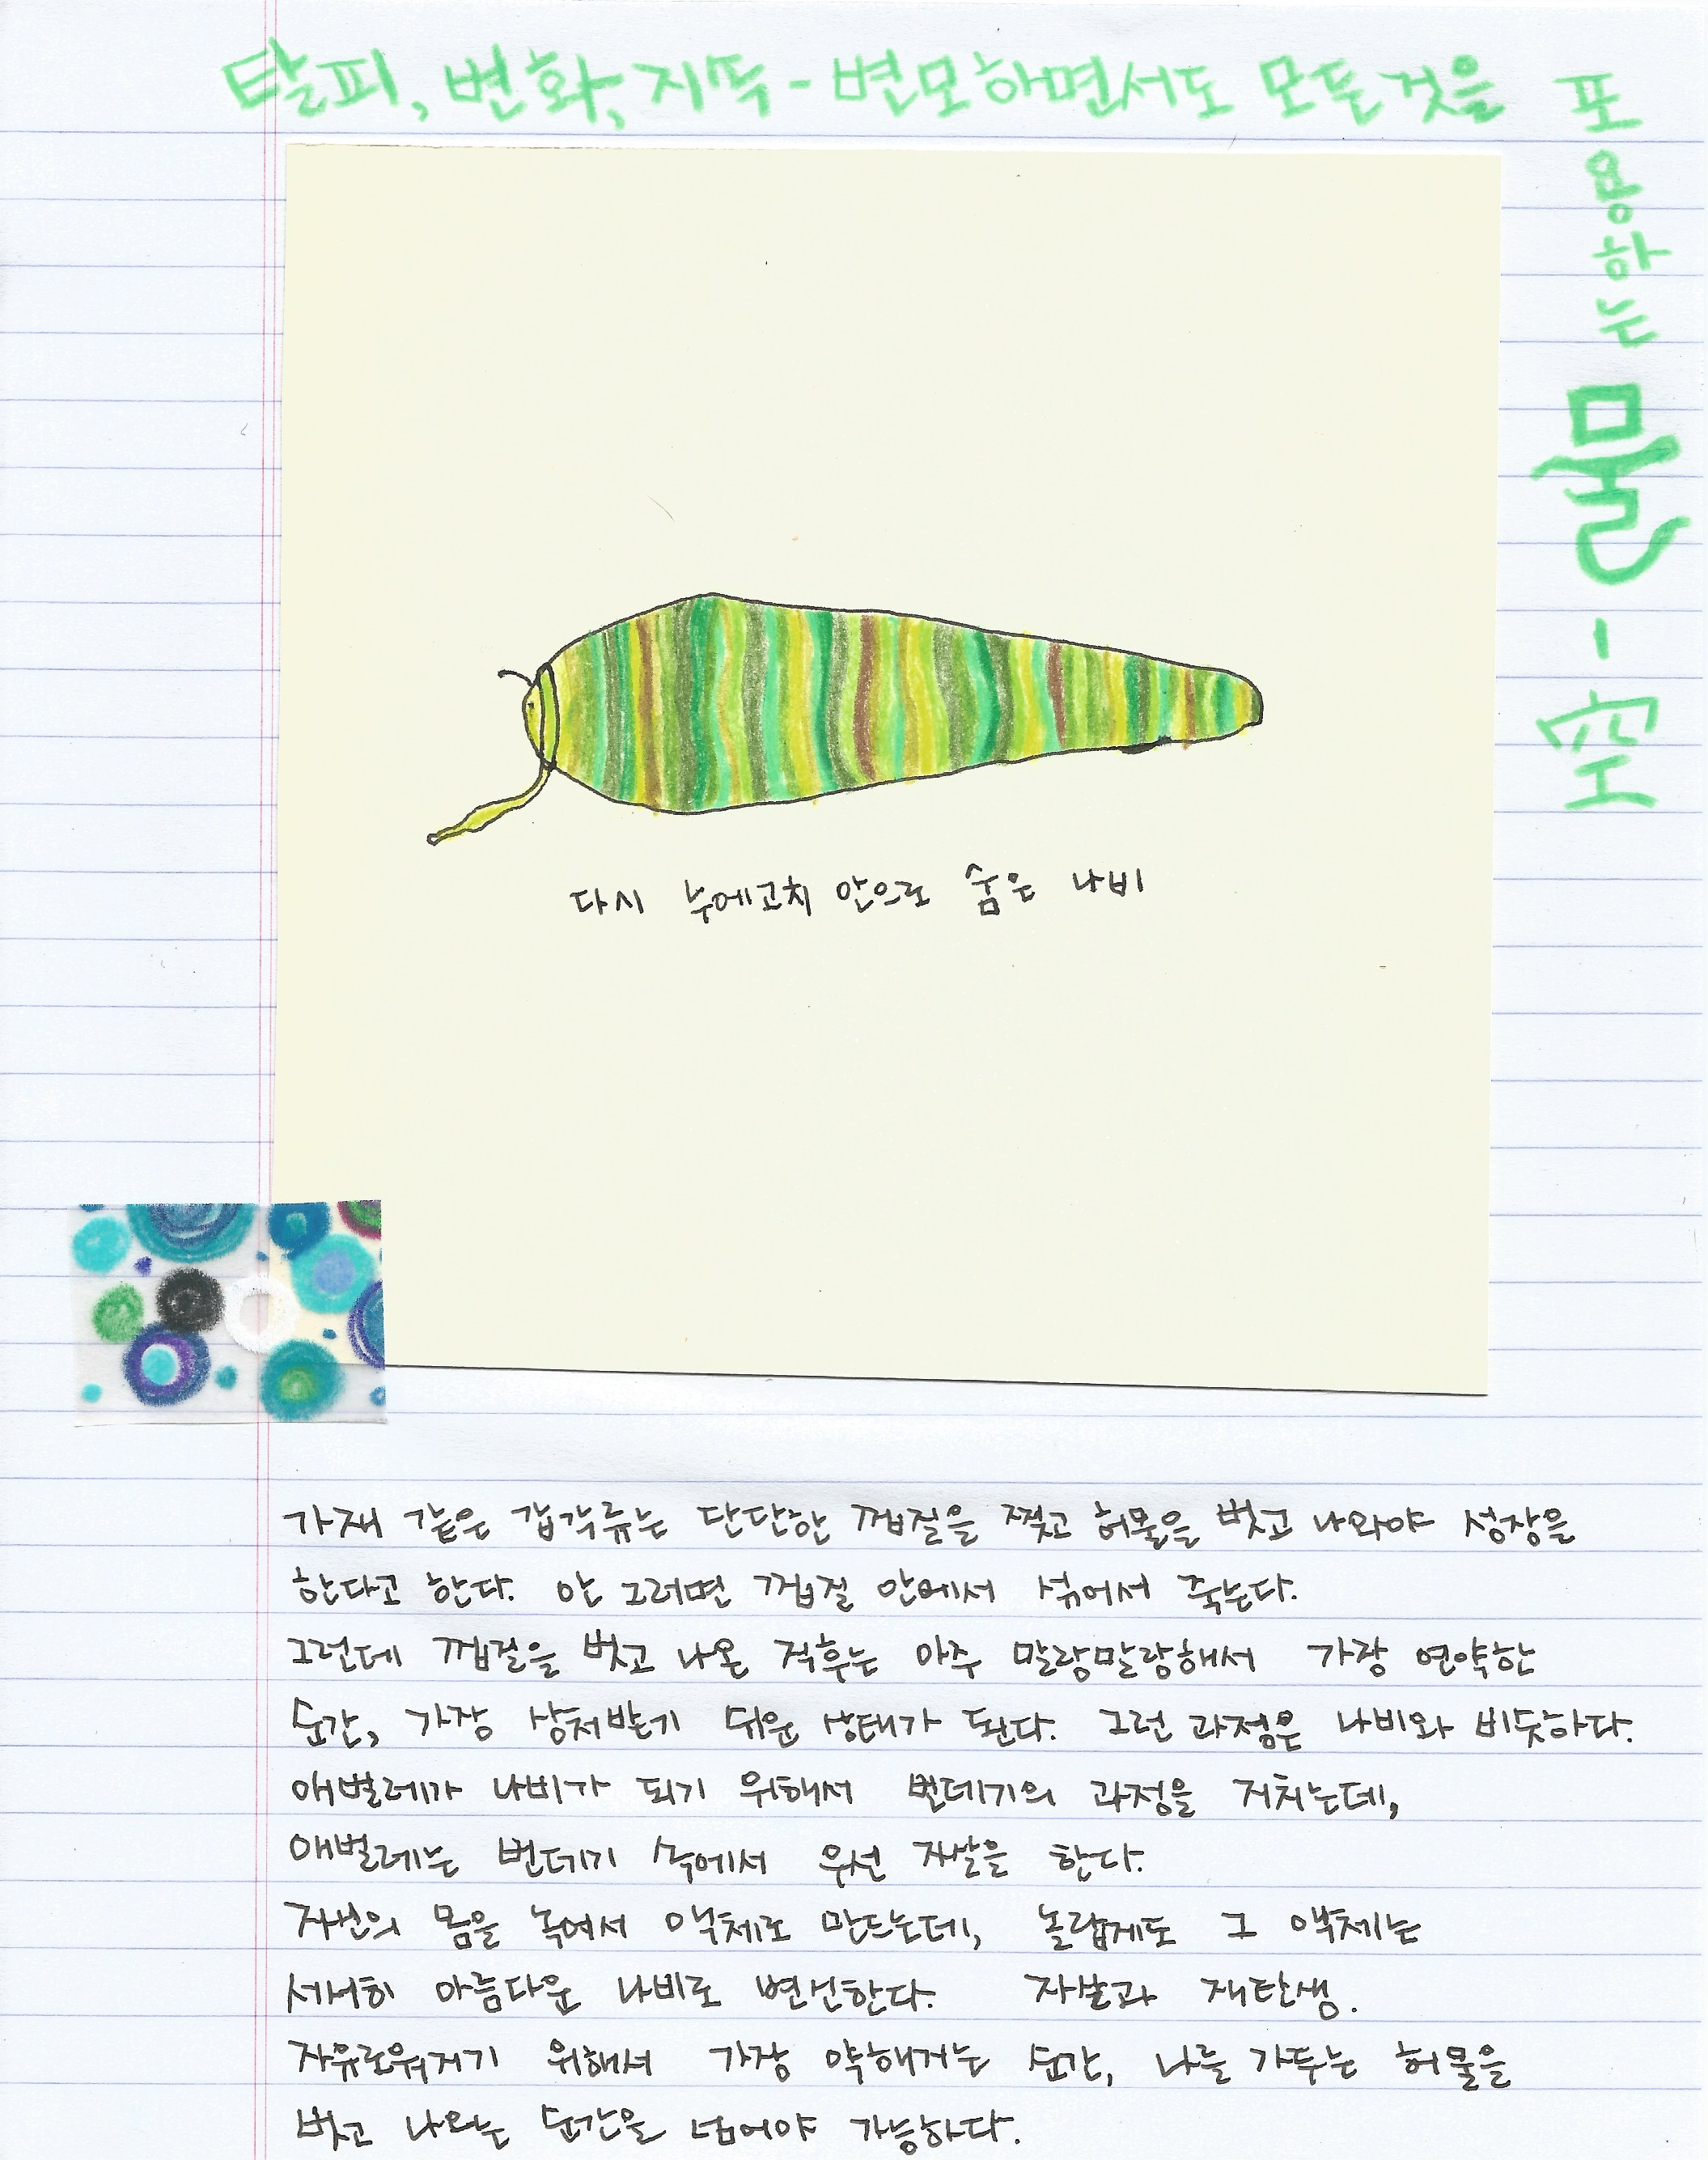 탈피, 변화, 지속 - 변모하면서도 모든 것을
포용하는 물 - 空
다시 누에고치 안으로 숨은 나비
가재 같은 갑각류는 단단한 껍질을 찢고 허물을 벗고 나와야 성장을
한다고 한다. 안 그러면 껍질 안에서 썪어서 죽는다.
그런데 껍질을 벗고 나온 직후는 아주 말랑말랑해서 가장 연약한
순간, 가장 상처받기 쉬운 상태가 된다. 그런 과정은 나비와 비슷하다.
애벌레가 나비가 되기 위해서 번데기의 과정을 거치는데,
애벌레는 번데기 속에서 우선 자살을 한다.
자신의 몸을 녹여서 액체로 만드는데, 놀랍게도 그 액체는
서서히 아름다운 나비로 변신한다. 자살과 재탄생.
자유로워지기 위해서 가장 약해지는 순간, 나를 가두는 허물을
벗고 나오는 순간을 넘어야 가능하다.